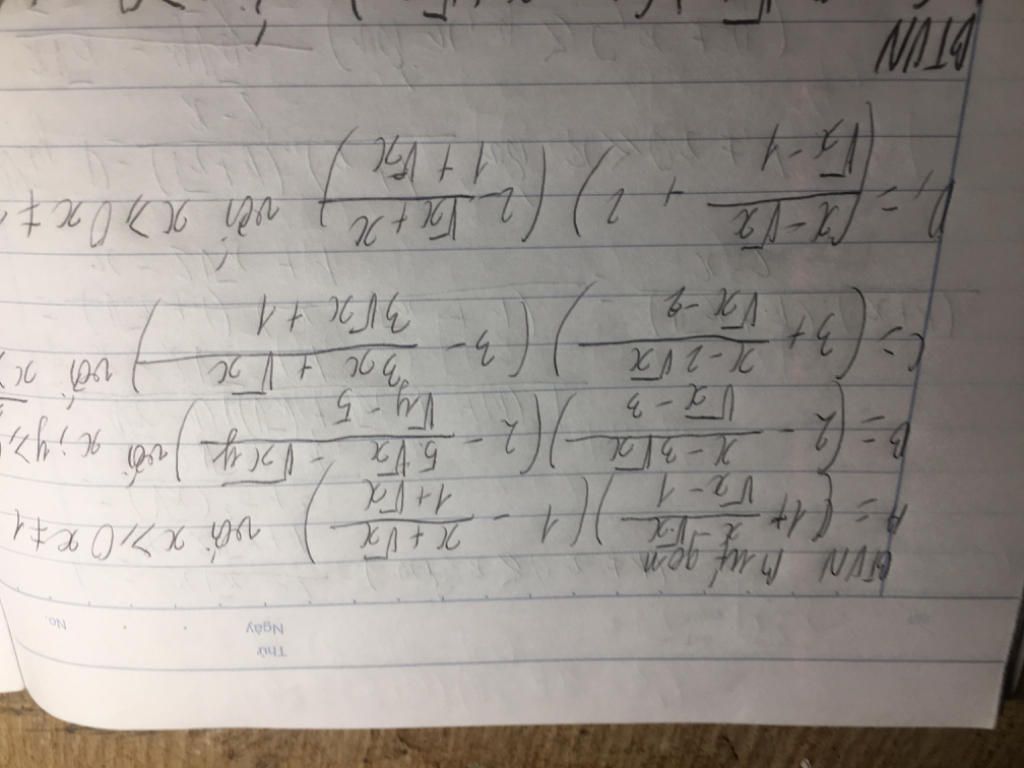 Thứ
Ngày
No.
BTVN Rút gọn
A = (1 + (x - √x)/(√x - 1)) (1 - (x + √x)/(1 + √x)) với x ≥ 0 x ≠ 1
B = (2 - (x - 3√x)/(√x - 3)) (2 - (5√x - √xy)/(√y - 5)) với x; y ≥
C = (3 + (x - 2√x)/(√x - 2)) (3 - (3x + √x)/(3√x + 1)) với x
D = ((x - √x)/(√x - 1) + 2) (2 - (√x + x)/(1 + √x)) với x ≥ 0 x ≠
BTVN